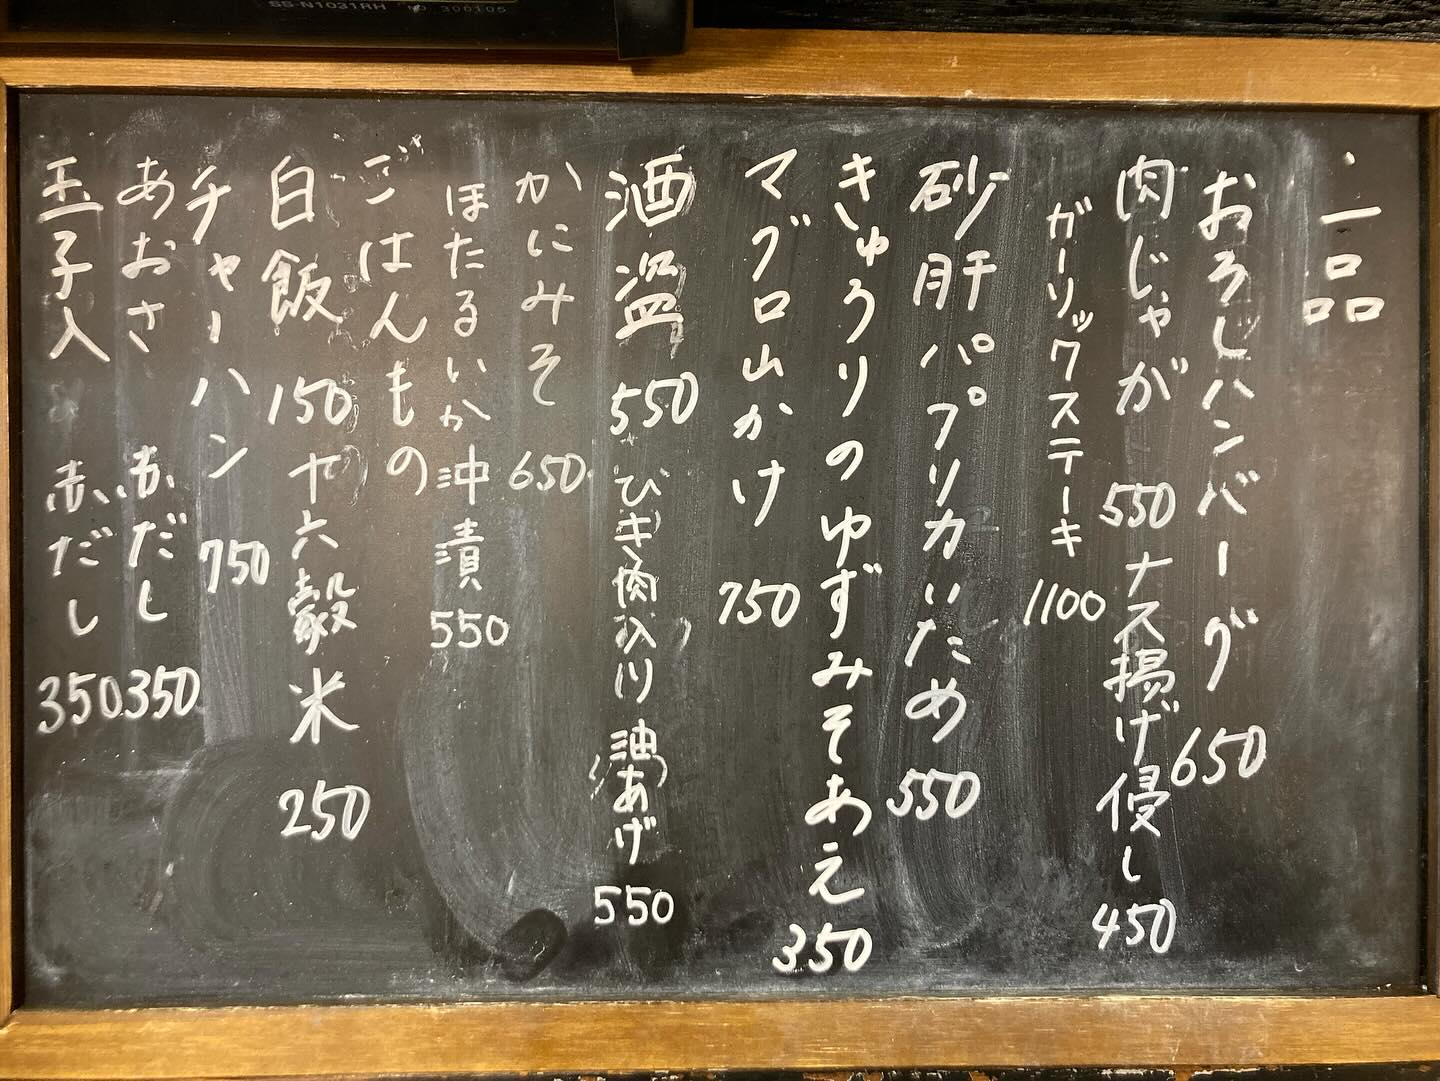 SS-N1031RH NO 300105
・一品
おろしハンバーグ 650
肉じゃが 550 ナス揚げ侵し 450
ガーリックステーキ 1100
砂肝パプリカいため 550
きゅうりのゆずみそあえ 350
マグロ山かけ 750
酒盗 550 ひき肉入り 油あげ 550
かにみそ 650
ほたるいか沖漬 550
ごはんもの
白飯 150 十六穀米 250
チャーハン 750
あおさ 赤だし 350
玉子入 赤だし 350